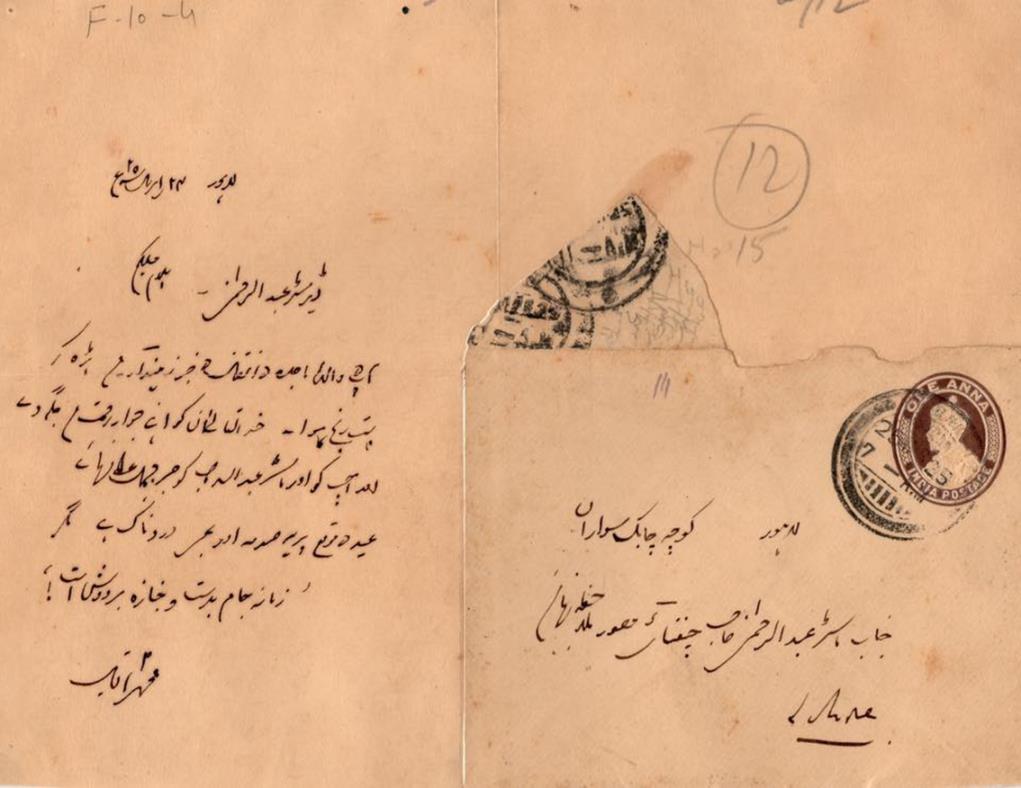 F-10-4
لاہور ۲۴ اپریل ۲۵ء
ڈیر ماسٹر عبدالرحمٰن۔ السلام علیکم
آپ کی والدہ ماجدہ کے انتقال کی خبر زمیندار میں پڑھ کر
بہت رنج ہوا۔ خدا تعالیٰ ان کو اپنے جوار رحمت میں جگہ دے
اور آپ کو اور ماسٹر عبداللہ صاحب کو صبر جمیل عطا فرمائے
عید کے موقع پر یہ صدمہ اور بھی دردناک ہے مگر
زمانہ جام بدست و جنازہ بردوش است!
محمد اقبال
12
15
ONE ANNA
INDIA POSTAGE
لاہور کوچہ چابک سواراں
جناب ماسٹر عبدالرحمٰن صاحب چغتائی مصور
Lahore